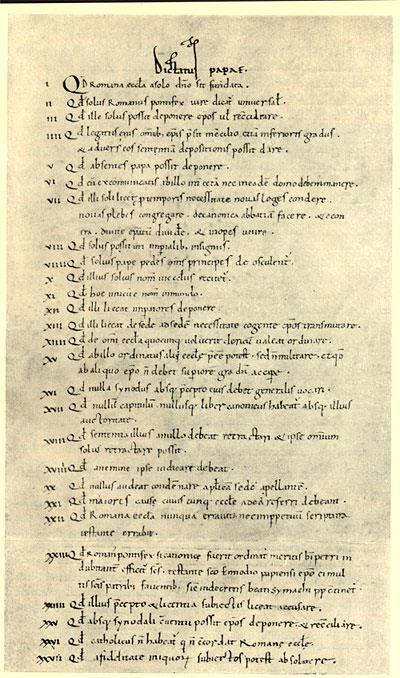 Dictatus papae.
I Qd Romana eccla a solo dno sit fundata.
II Qd solus Romanus pontifex iure dicat universal.
III Qd ille solus possit deponere epos vel reciliare.
IIII Qd legatus eius omib. epis psit in cclio etia inferioris gradus.
& advers eos sententia depositionis possit dare.
V Qd absentes papa possit deponere.
VI Qd cu excommunicatis ab illo int cetera nec in eade domo debem manere.
VII Qd illi soli licet p temporis necessitate novas leges condere
novas plebes congregare. de canonica abbatiam facere. & econ
tra. divite epatu divide. & inopes unire.
VIII Qd solus possit uti impialib. insigniis.
VIIII Qd solius pape pedes oms principes deosculent.
X Qd illius solius nom in ecclis recitet.
XI Qd hoc unicu e nom in mundo.
XII Qd illi liceat impatores deponere.
XIII Qd illi liceat de sede ad sede necessitate cogente epos transmutare.
XIIII Qd de omi eccla quocuq voluerit clericu valeat ordinare.
XV Qd ab illo ordinatus alii eccle pee potest. sed n militare. et qd
ab aliquo epo n debet supiore gradu accipe.
XVI Qd nulla synodus absq pcepto eius debet generalis vocari.
XVII Qd nullu capitulu nullusq liber canonicus habeat absq illius
auctoritate.
XVIII Qd sententia illius a nullo debeat retractari & ipse omium
solus retractare possit.
XVIIII Qd a nemine ipse iudicari debeat.
XX Qd nullus audeat condenare aplica sede apellante.
XXI Qd maiores cause cuiuscunq eccle ad ea referri debeant.
XXII Qd Romana eccla nunqua erravit nec imppetuu scriptura
testante errabit.
XXIII Qd Roman pontifex si canonice fuerit ordinat meritis bi petri in
dubitant effici scs. testante sco Ennodio papiensi epo ei mul
tis scis patrib faventib. sic in decretis beati symachi pp cctinet.
XXIIII Qd illius pcepto & licentia subiectis liceat accusare.
XXV Qd absq synodali cventu possit epos deponere & recciliare.
XXVI Qd catholicus n habeat q n ccordat Romane eccle.
XXVII Qd a fidelitate iniquor subiectos potest absolvere.